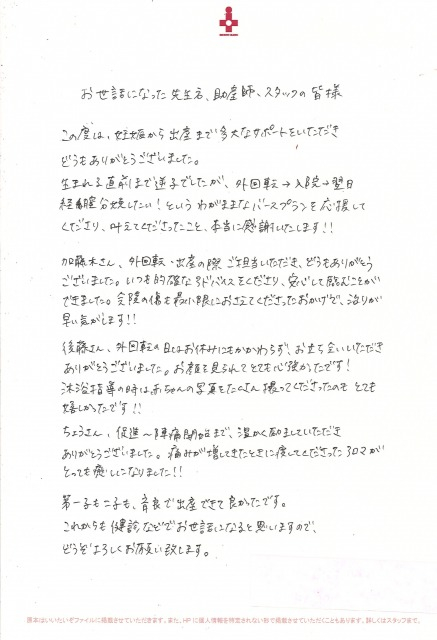 お世話になった先生方、助産師、スタッフの皆様
この度は、妊娠から出産まで多大なサポートをいただき
どうもありがとうございました。
生まれる直前まで逆子でしたが、外回転→入院→翌日
経腟分娩したい!というわがままなバースプランを応援して
くださり、叶えてくださったこと、本当に感謝いたします!!
加藤木さん、外回転・出産の際ご担当いただき、どうもありがとう
ございました。いつも的確なアドバイスをくださり、安心して臨むことが
できました。会陰の傷も最小限におさえてくださったおかげで、治りが
早い気がします!!
後藤さん、外回転の日はお休みにもかかわらず、お立ち会いいただき
ありがとうございました。お顔を見られてとても心強かったです!
沐浴指導の時は赤ちゃんの写真をたくさん撮ってくださったのも とても
嬉しかったです!!
ちょうさん、促進〜陣痛開始まで、温かく励ましていただき
ありがとうございました。痛みが増してきたときに焚してくださったアロマが
とっても癒しになりました!!
第一子も二子も、育良で出産できて良かったです。
これからも健診などでお世話になると思いますので、
どうぞよろしくお願い致します。
原本はいいたいぞファイルに掲載させていただきます。また、HPに個人情報を特定されない形で掲載させていただくこともあります。詳しくはスタッフまで。